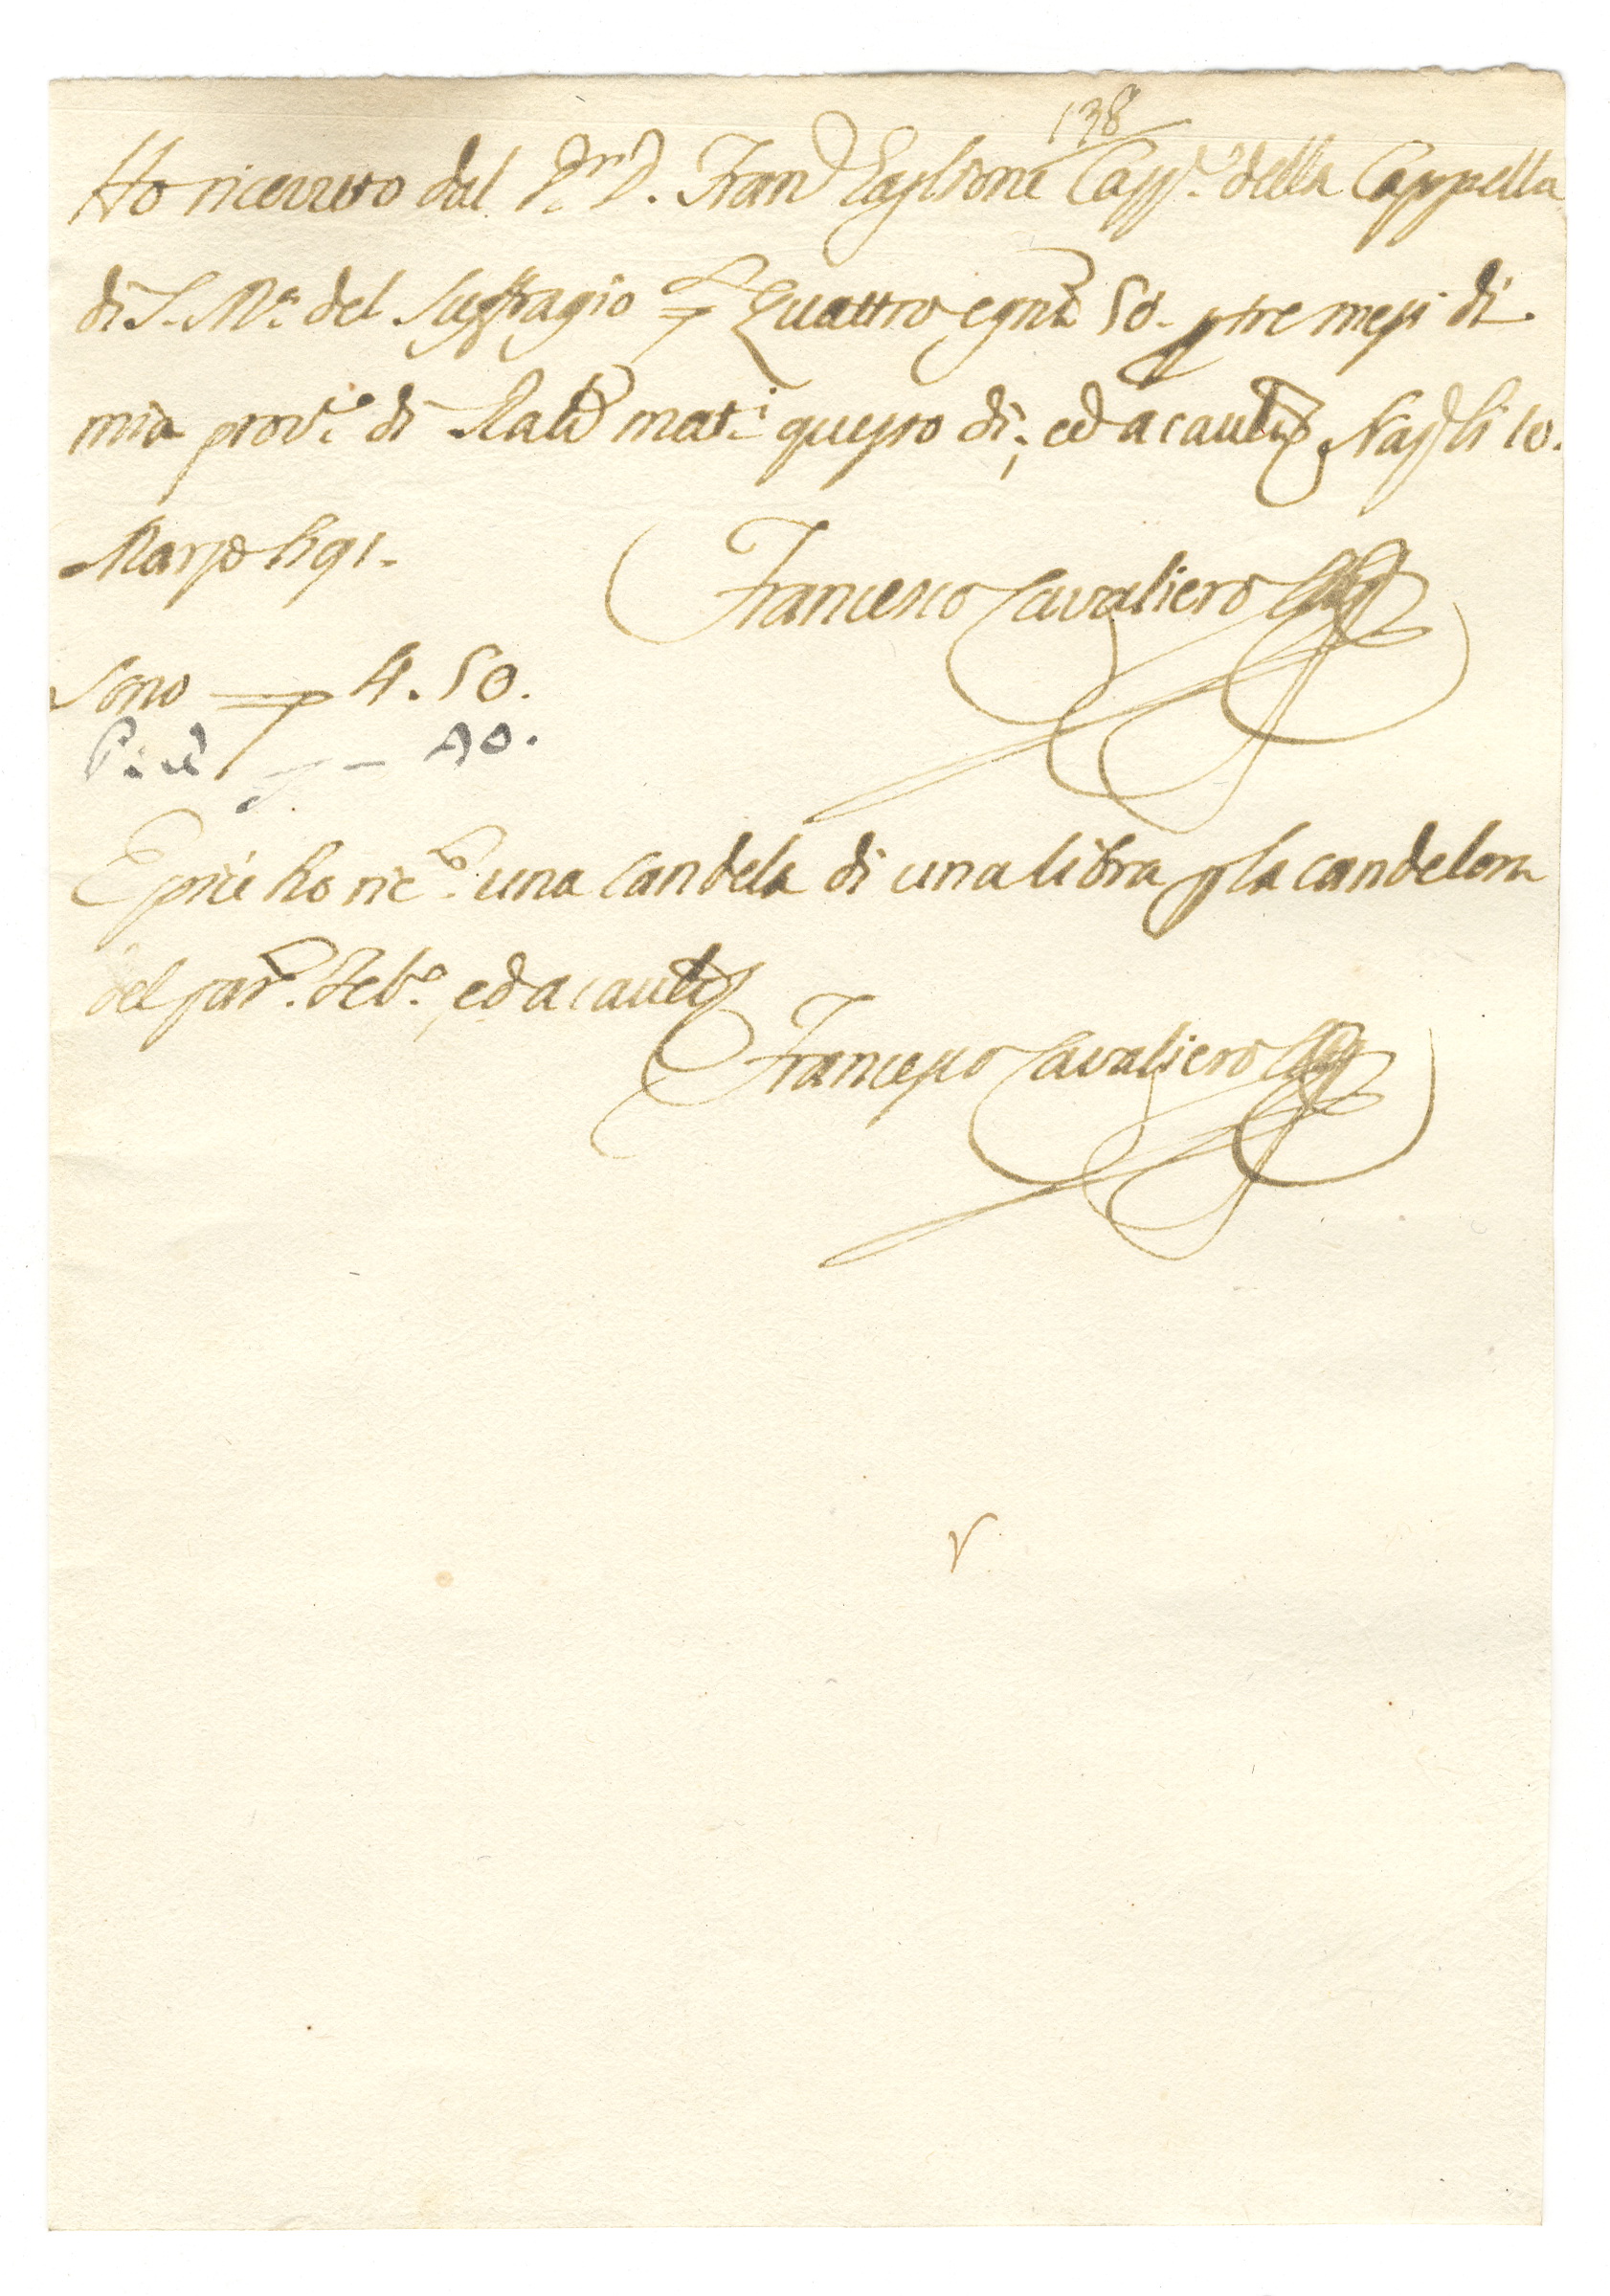 138
Ho ricevuto dal Sr. D. Franco Taglione Capp.o della Cappella
di S. M.a del Suffragio Quattro e gna 50. p tre mesi di
mia prov.e di mat.i questo di; ed a caut.a Napoli 10.
Marzo
Francesco Cavaliero
Sono 4.50.
Più 40.
E più ho ric.o una candela di una libra p la candelora
del pas.o Feb.o, ed a caut.a
Francesco Cavaliero